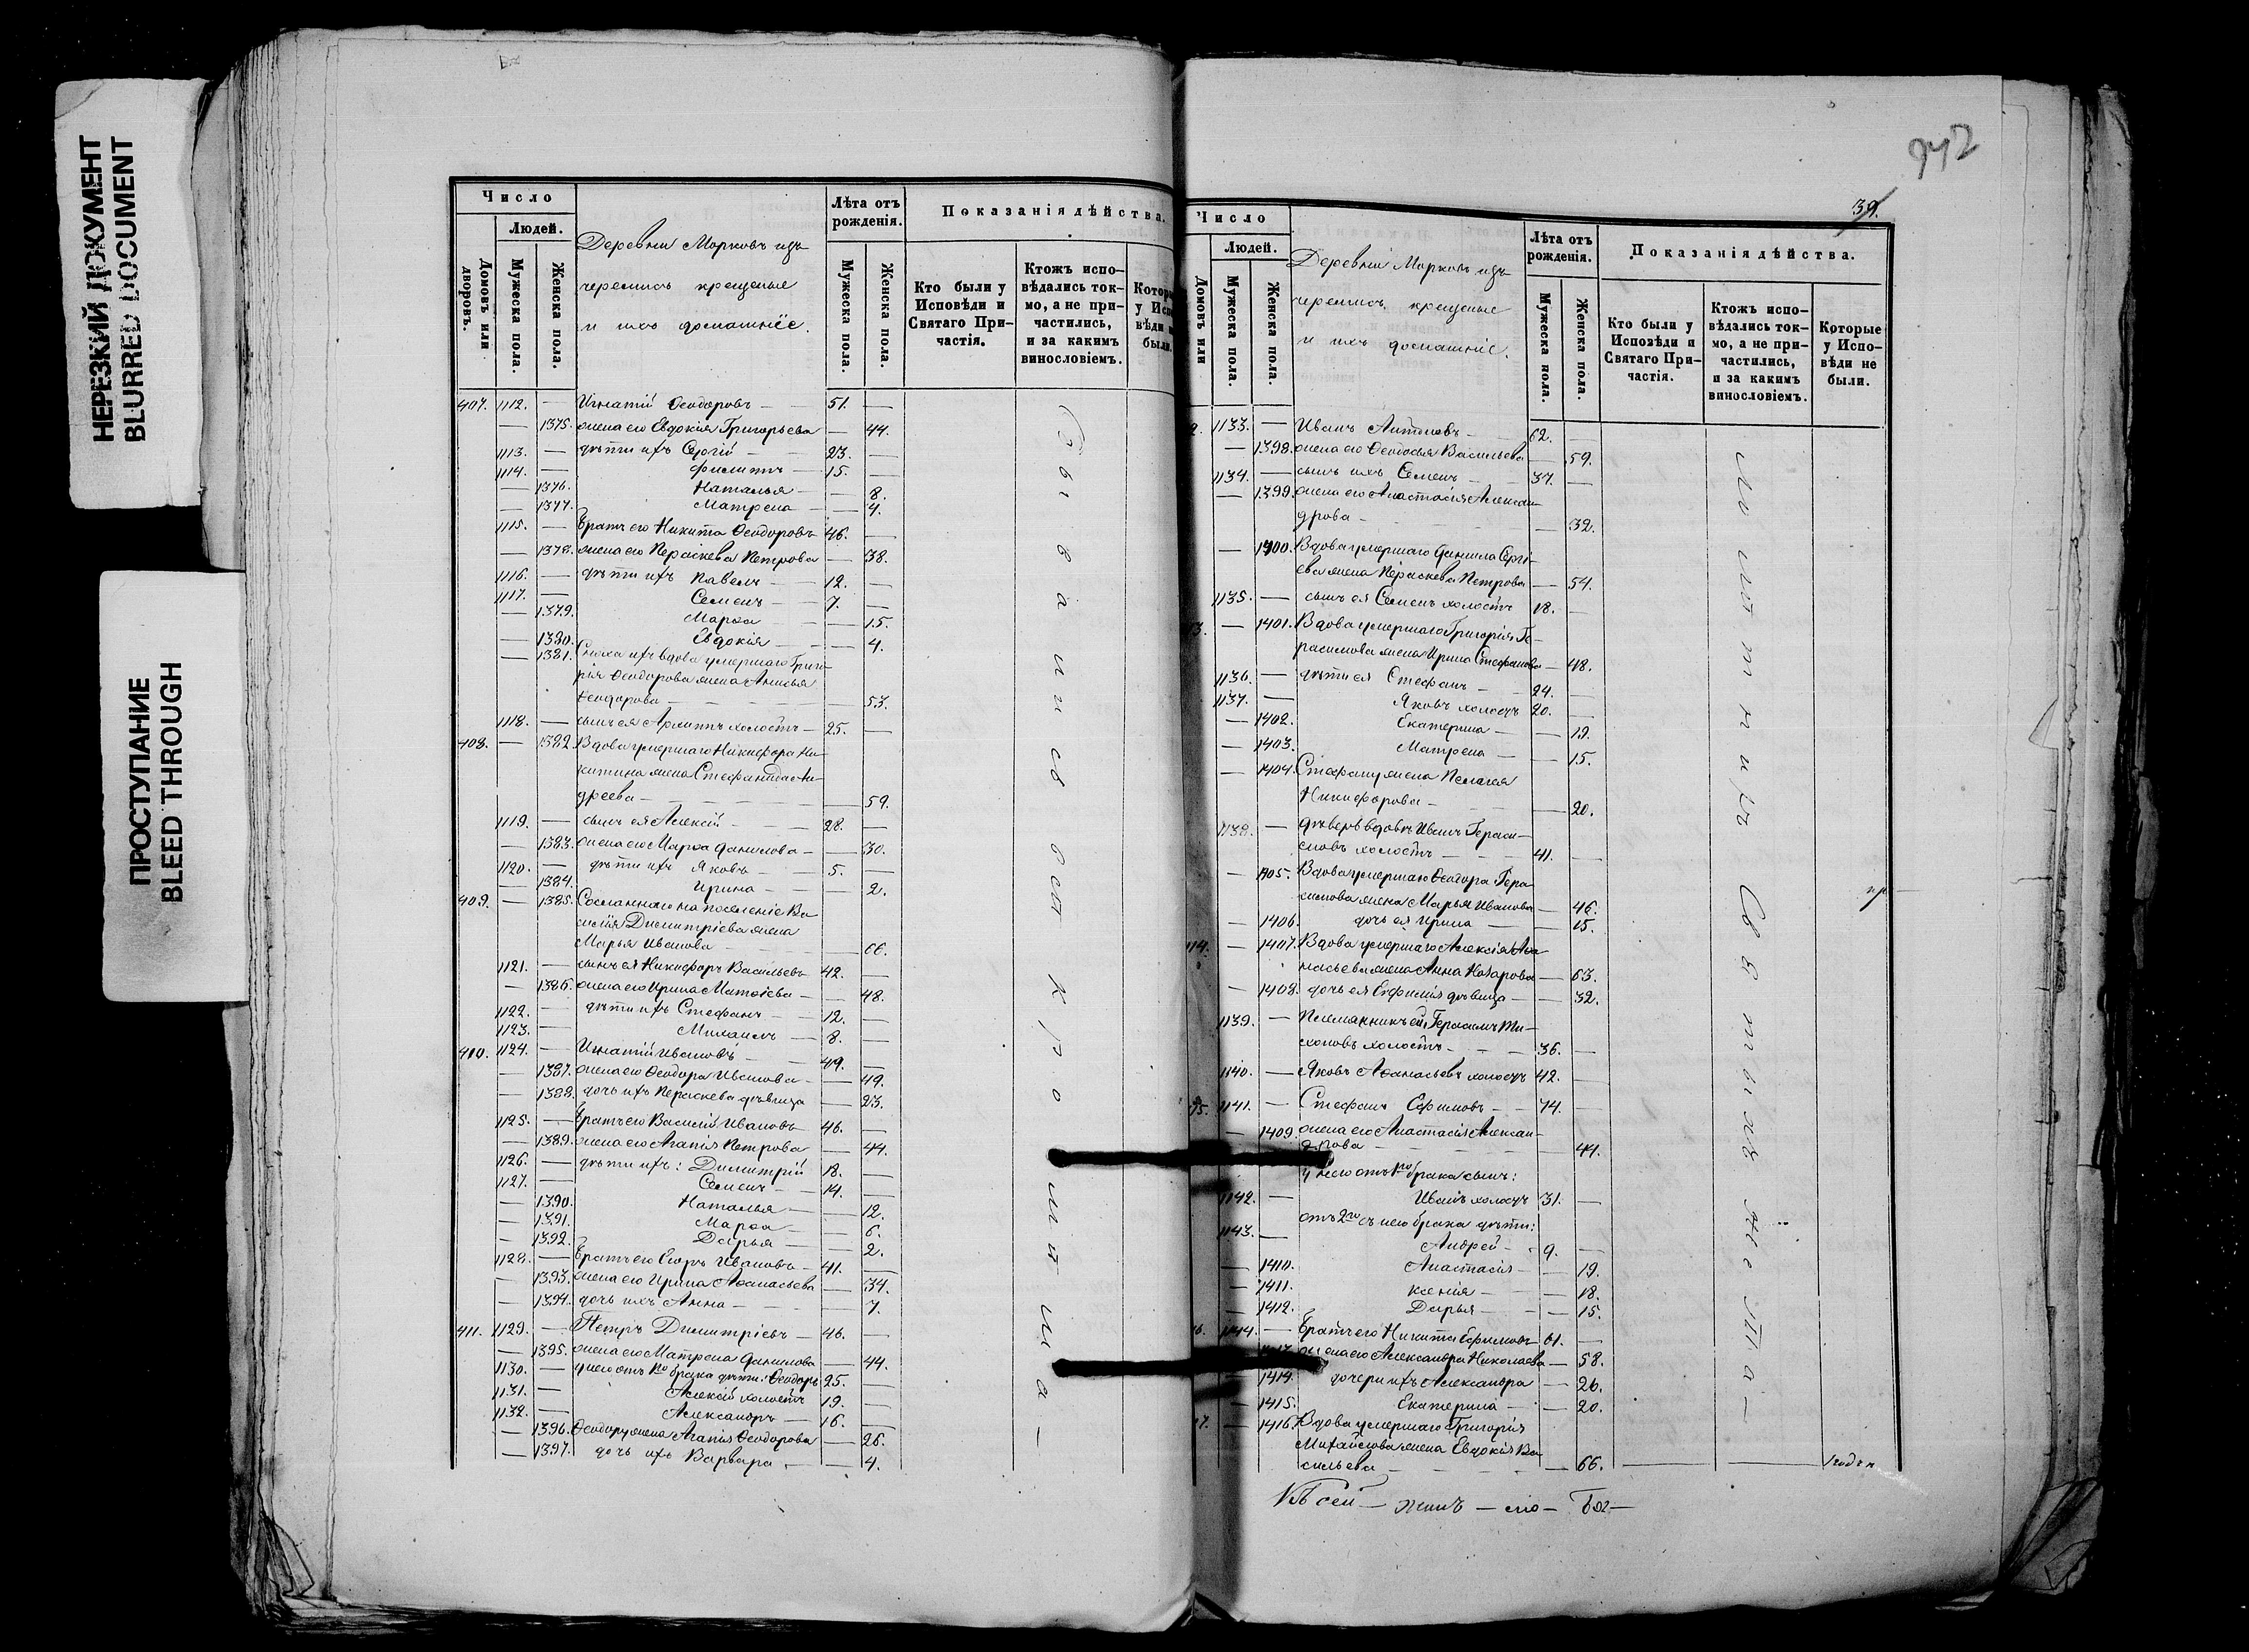 НЕРЕЗКИЙ ДОКУМЕНТ
BLURRED DOCUMENT
ПРОСТУПАНИЕ
BLEED THROUGH
Число
Людей.
Домовъ или дворовъ.
Мужеска пола.
Женска пола.
Деревни Марковъ изъ
черемисъ крещеные
и ихъ домашніе.
Лѣта отъ рожденія.
Мужеска пола.
Женска пола.
Показанія дѣйства.
Кто были у Исповѣди и Святаго Причастія.
Ктожъ исповѣдались токмо, а не причастились, и за какимъ винословіемъ.
407. 1112. — Игнатій Ѳеодоровъ — 51. —
— 1375. жена его Евдокія Григорьева — 44.
1113. — дѣти ихъ Сергій — 23. —
1114. — Филиппъ — 15. —
— 1376. Наталья — — 8.
— 1377. Матрена — — 4.
1115. — Братъ его Никита Ѳеодоровъ 46. —
— 1378. жена его Параскева Петрова — 38.
1116. — дѣти ихъ Павелъ — 12. —
1117. — Семенъ — 7. —
— 1379. Марѳа — — 15.
— 1380. Евдокія — — 4.
— 1381. Сноха ихъ вдова умершаго Григо-
рія Ѳеодорова жена Анисья
Ѳеодорова — — 53.
1118. — сынъ ея Архиппъ холостъ — 25. —
408. — 1382. Вдова умершаго Никифора Ни-
китина жена Стефанида Ан-
дреева — — 59.
1119. — сынъ ея Алексій — 28. —
— 1383. жена его Марѳа Данилова — — 30.
1120. — дѣти ихъ Яковъ — 5. —
— 1384. Ирина — — 2.
409. — 1385. Сосланнаго на поселеніе Ва-
силія Димитріева жена
Марья Иванова — — 66.
1121. — сынъ ея Никифоръ Васильевъ 42. —
— 1386. жена его Ирина Матѳіева — — 48.
1122. — дѣти ихъ Стефанъ — 12. —
1123. — Михаилъ — 8. —
410. 1124. — Игнатій Ивановъ — 49. —
— 1387. жена его Ѳеодора Иванова — — 49.
— 1388. дочь ихъ Параскева дѣвица — 23.
1125. — Братъ его Василій Ивановъ 46. —
— 1389. жена его Агапія Петрова — 44.
1126. — дѣти ихъ: Димитрій 18. —
1127. — Семенъ — 14. —
— 1390. Наталья — — 12.
— 1391. Марѳа — — 6.
— 1392. Дарья — — 2.
1128. — Братъ его Егоръ Ивановъ — 41. —
— 1393. жена его Ирина Аѳанасьева — 34.
— 1394. дочь ихъ Анна — — 7.
411. 1129. — Петръ Димитріевъ — 46. —
— 1395. жена его Матрена Данилова — 44.
1130. — у него отъ 1го брака дѣти: Ѳеодоръ 25. —
1131. — Алексій холостъ 19. —
1132. — Александръ — 16. —
— 1396. Ѳеодору жена Агапія Ѳеодорова — 26.
— 1397. дочь ихъ Варвара — — 4.
942
39.
Число
Людей.
Домовъ или
Мужеска пола.
Женска пола.
Деревни Марковъ изъ
черемисъ крещеные
и ихъ домашніе.
Лѣта отъ рожденія.
Мужеска пола.
Женска пола.
Показанія дѣйства.
Кто были у Исповѣди и Святаго Причастія.
Ктожъ исповѣдались токмо, а не причастились, и за какимъ винословіемъ.
Которые у Исповѣди не были.
1133. — Иванъ Антоновъ — 62. —
— 1398. жена его Ѳеодосья Васильева — 59.
1134. — сынъ ихъ Семенъ — 37. —
— 1399. жена его Анастасія Алексан-
дрова — — 32.
— 1400. Вдова умершаго Данила Сергі-
ева жена Параскева Петрова — 54.
1135. — сынъ ея Семенъ холостъ 18. —
— 1401. Вдова умершаго Григорія Ге-
расимова жена Ирина Стефанова — 48.
1136. — дѣти ея Стефанъ — 24. —
1137. — Яковъ холостъ 20. —
— 1402. Екатерина — — 19.
— 1403. Матрена — — 15.
— 1404. Стефану жена Пелагея
Никифорова — — 20.
1138. — дѣверь вдовѣ Иванъ Гераси-
мовъ холостъ — 41. —
— 1405. Вдова умершаго Ѳеодора Гера-
симова жена Марья Иванова — 46.
— 1406. дочь ея Ирина — 15.
— 1407. Вдова умершаго Алексія Аѳа-
насьева жена Анна Назарова — 63.
— 1408. дочь ея Евфимія дѣвица — — 32.
1139. — Племянникъ ей Герасимъ Ти-
хоновъ холостъ — 36. —
1140. — Яковъ Аѳанасьевъ холостъ 42. —
1141. — Стефанъ Ефимовъ — 74. —
— 1409. жена его Анастасія Алексан-
дрова — — 44.
у него отъ 1го брака сынъ:
1142. — Иванъ холостъ 31. —
отъ 2го съ нею брака дѣти:
1143. — Андрей — 9. —
— 1410. Анастасія — — 19.
— 1411. Ксенія — — 18.
— 1412. Дарья — — 15.
1144. — Братъ его Никита Ефимовъ 61. —
жена его Александра Николаева — 58.
— 1414. дочери ихъ Александра — 26.
— 1415. Екатерина — — 20.
— 1416. Вдова умершаго Григорія
Михайлова жена Евдокія Ва-
сильева — — 66.